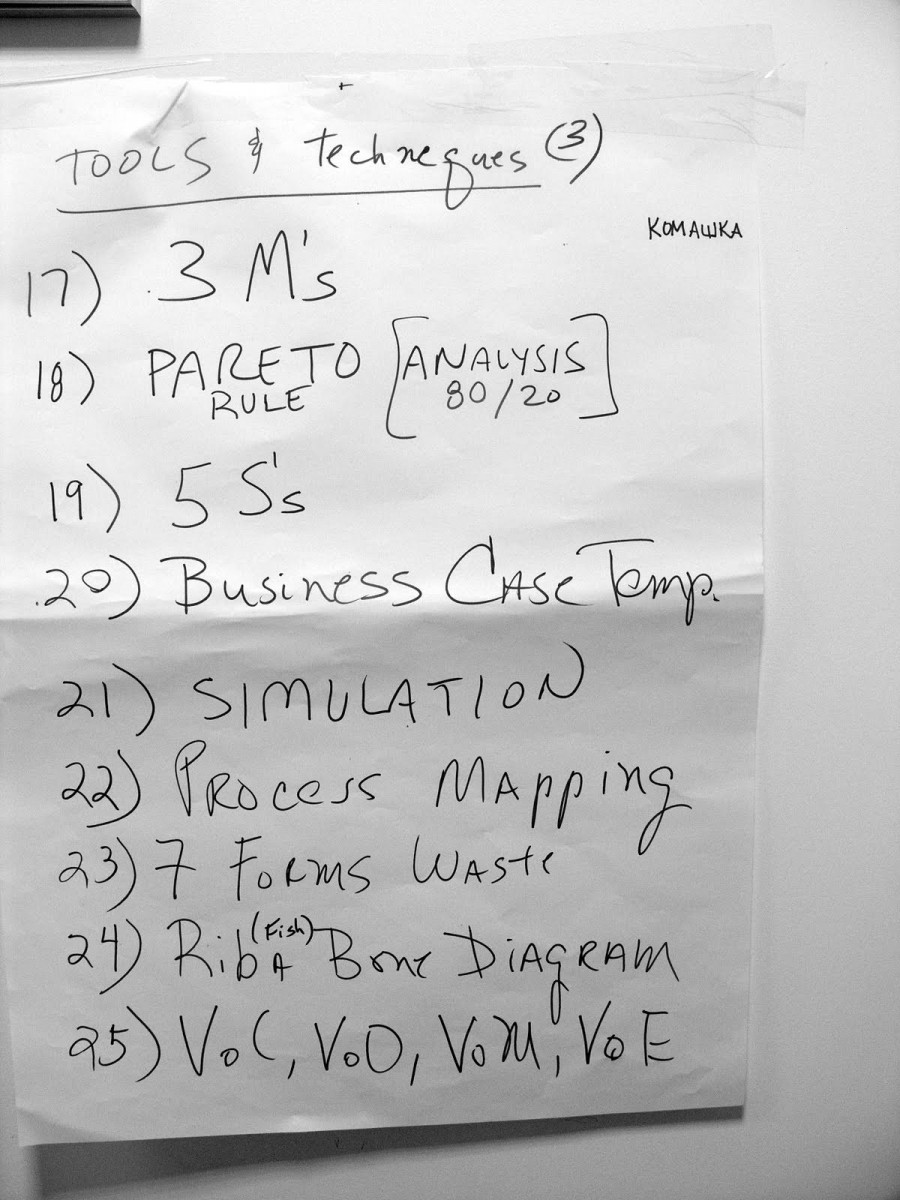 TOOLS & Techneques (3)
KOMAWKA
17) 3 M's
18) PARETO [ANALYSIS
RULE 80/20]
19) 5 S's
20) Business Case Temp.
21) SIMULATION
22) Process Mapping
23) 7 Forms Waste
24) Rib (Fish) Bone Diagram
25) VoC, VoO, VoM, VoE